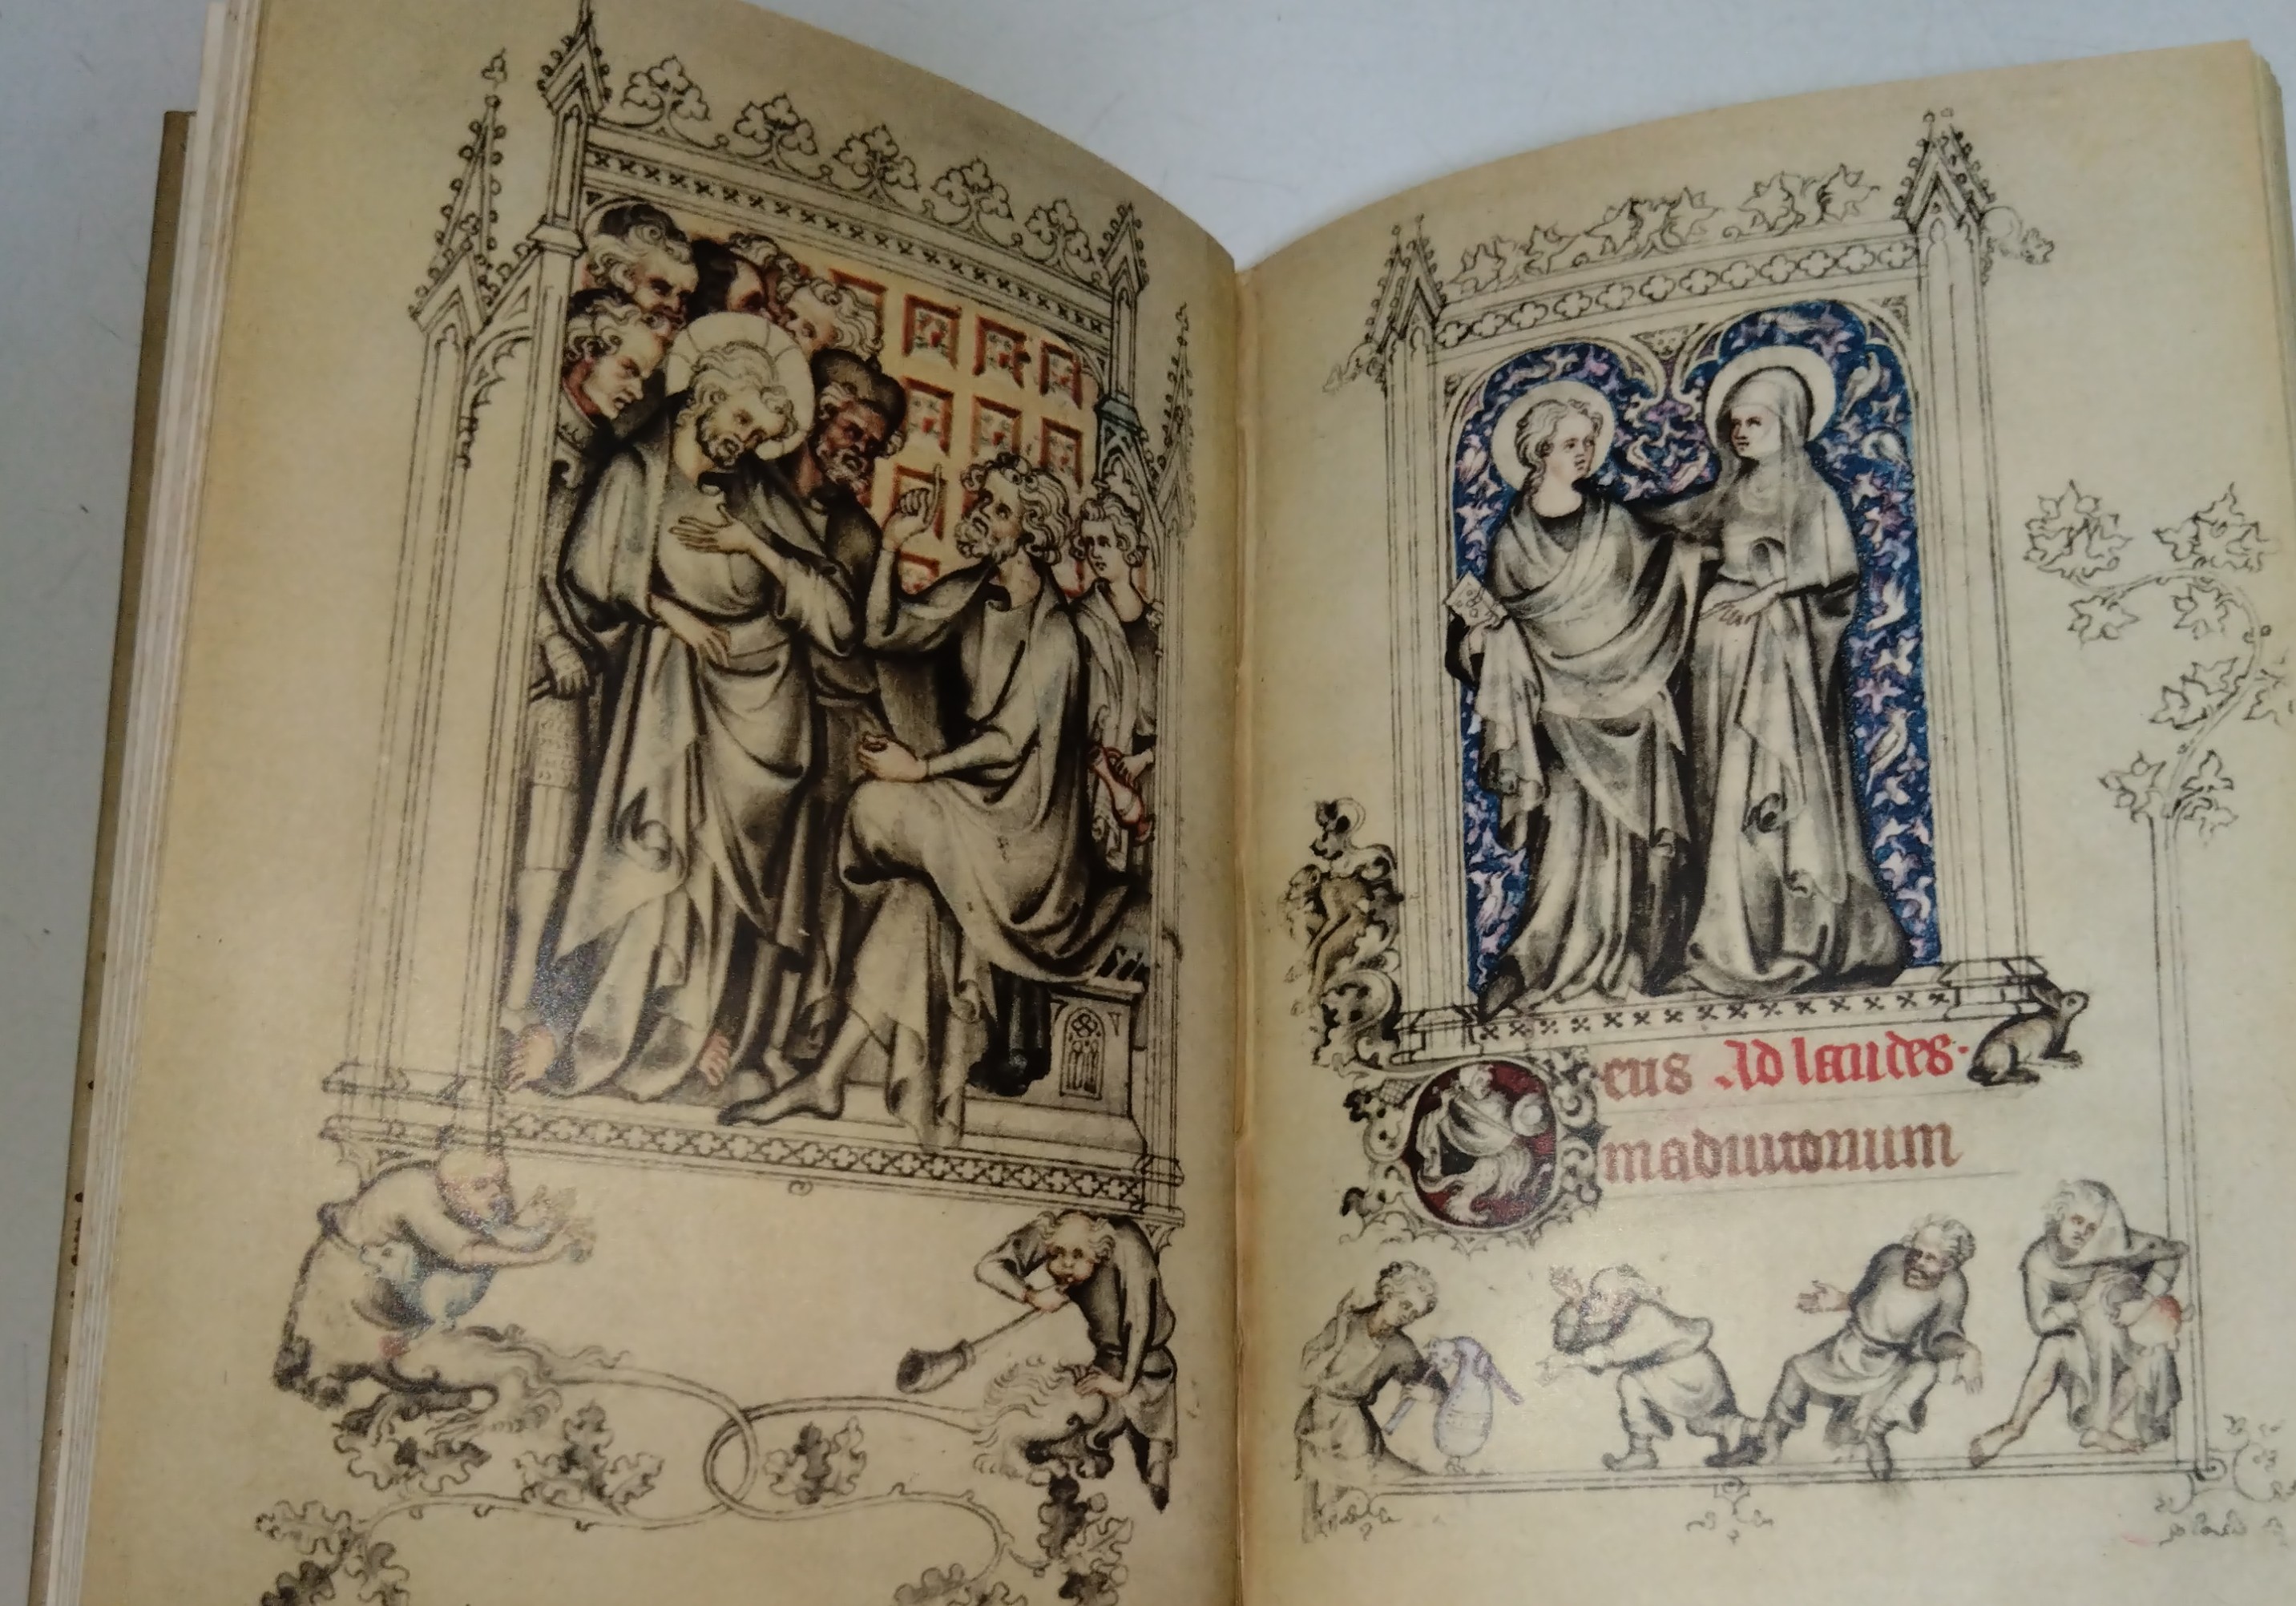 Deus Ad laudes·
in adiutorium